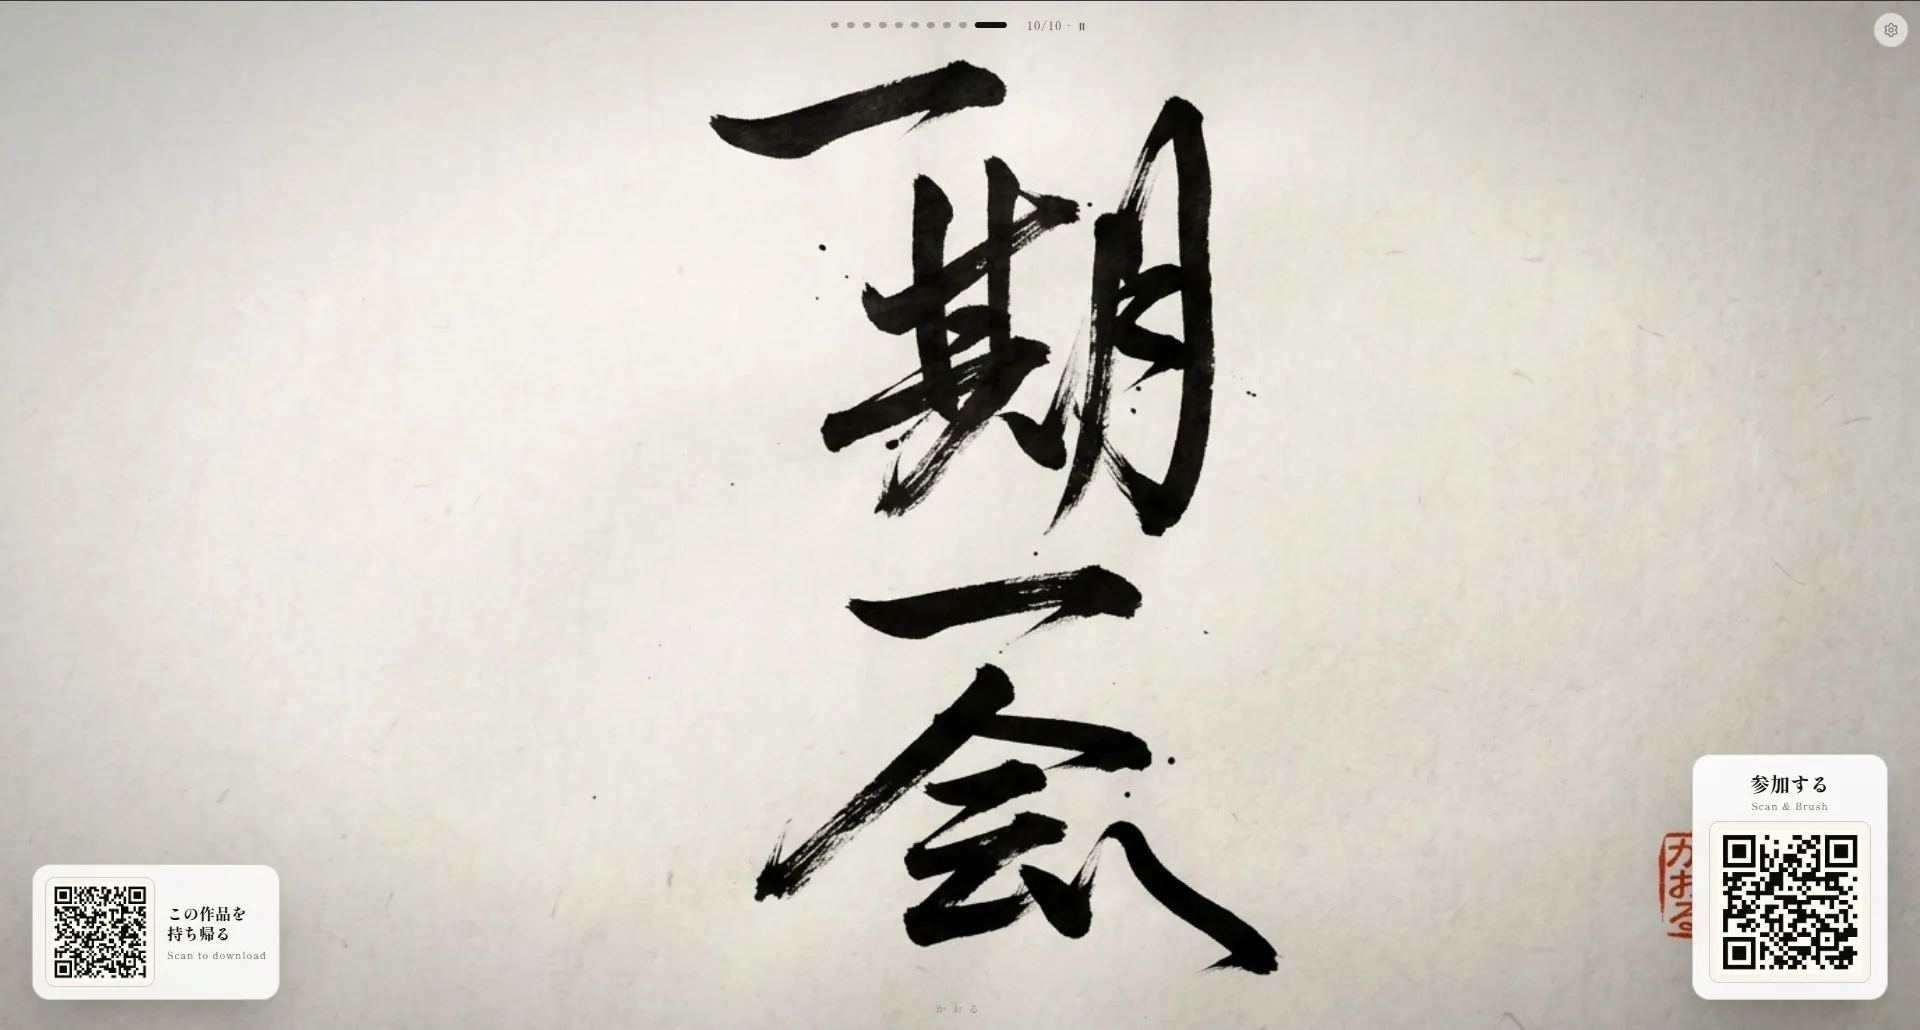 10/10 ·
一期一会
この作品を
持ち帰る
Scan to download
参加する
Scan & Brush
かおる
かおる